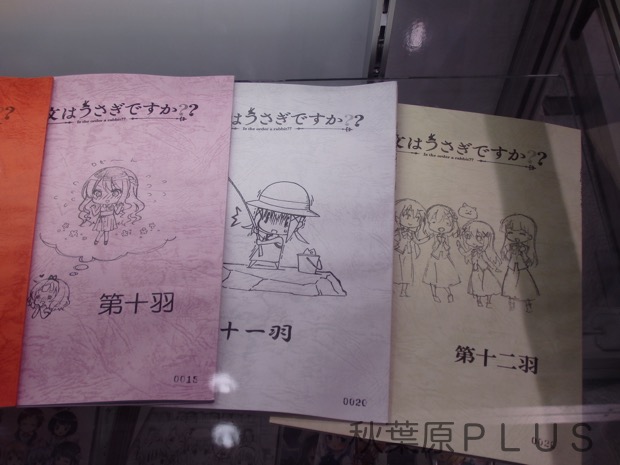 ?
文はうさぎですか??
Is the order a rabbit??
第十羽
0015
はうさぎですか??
Is the order a rabbit??
十一羽
0020
文はうさぎですか??
Is the order a rabbit??
第十二羽
秋葉原PLUS